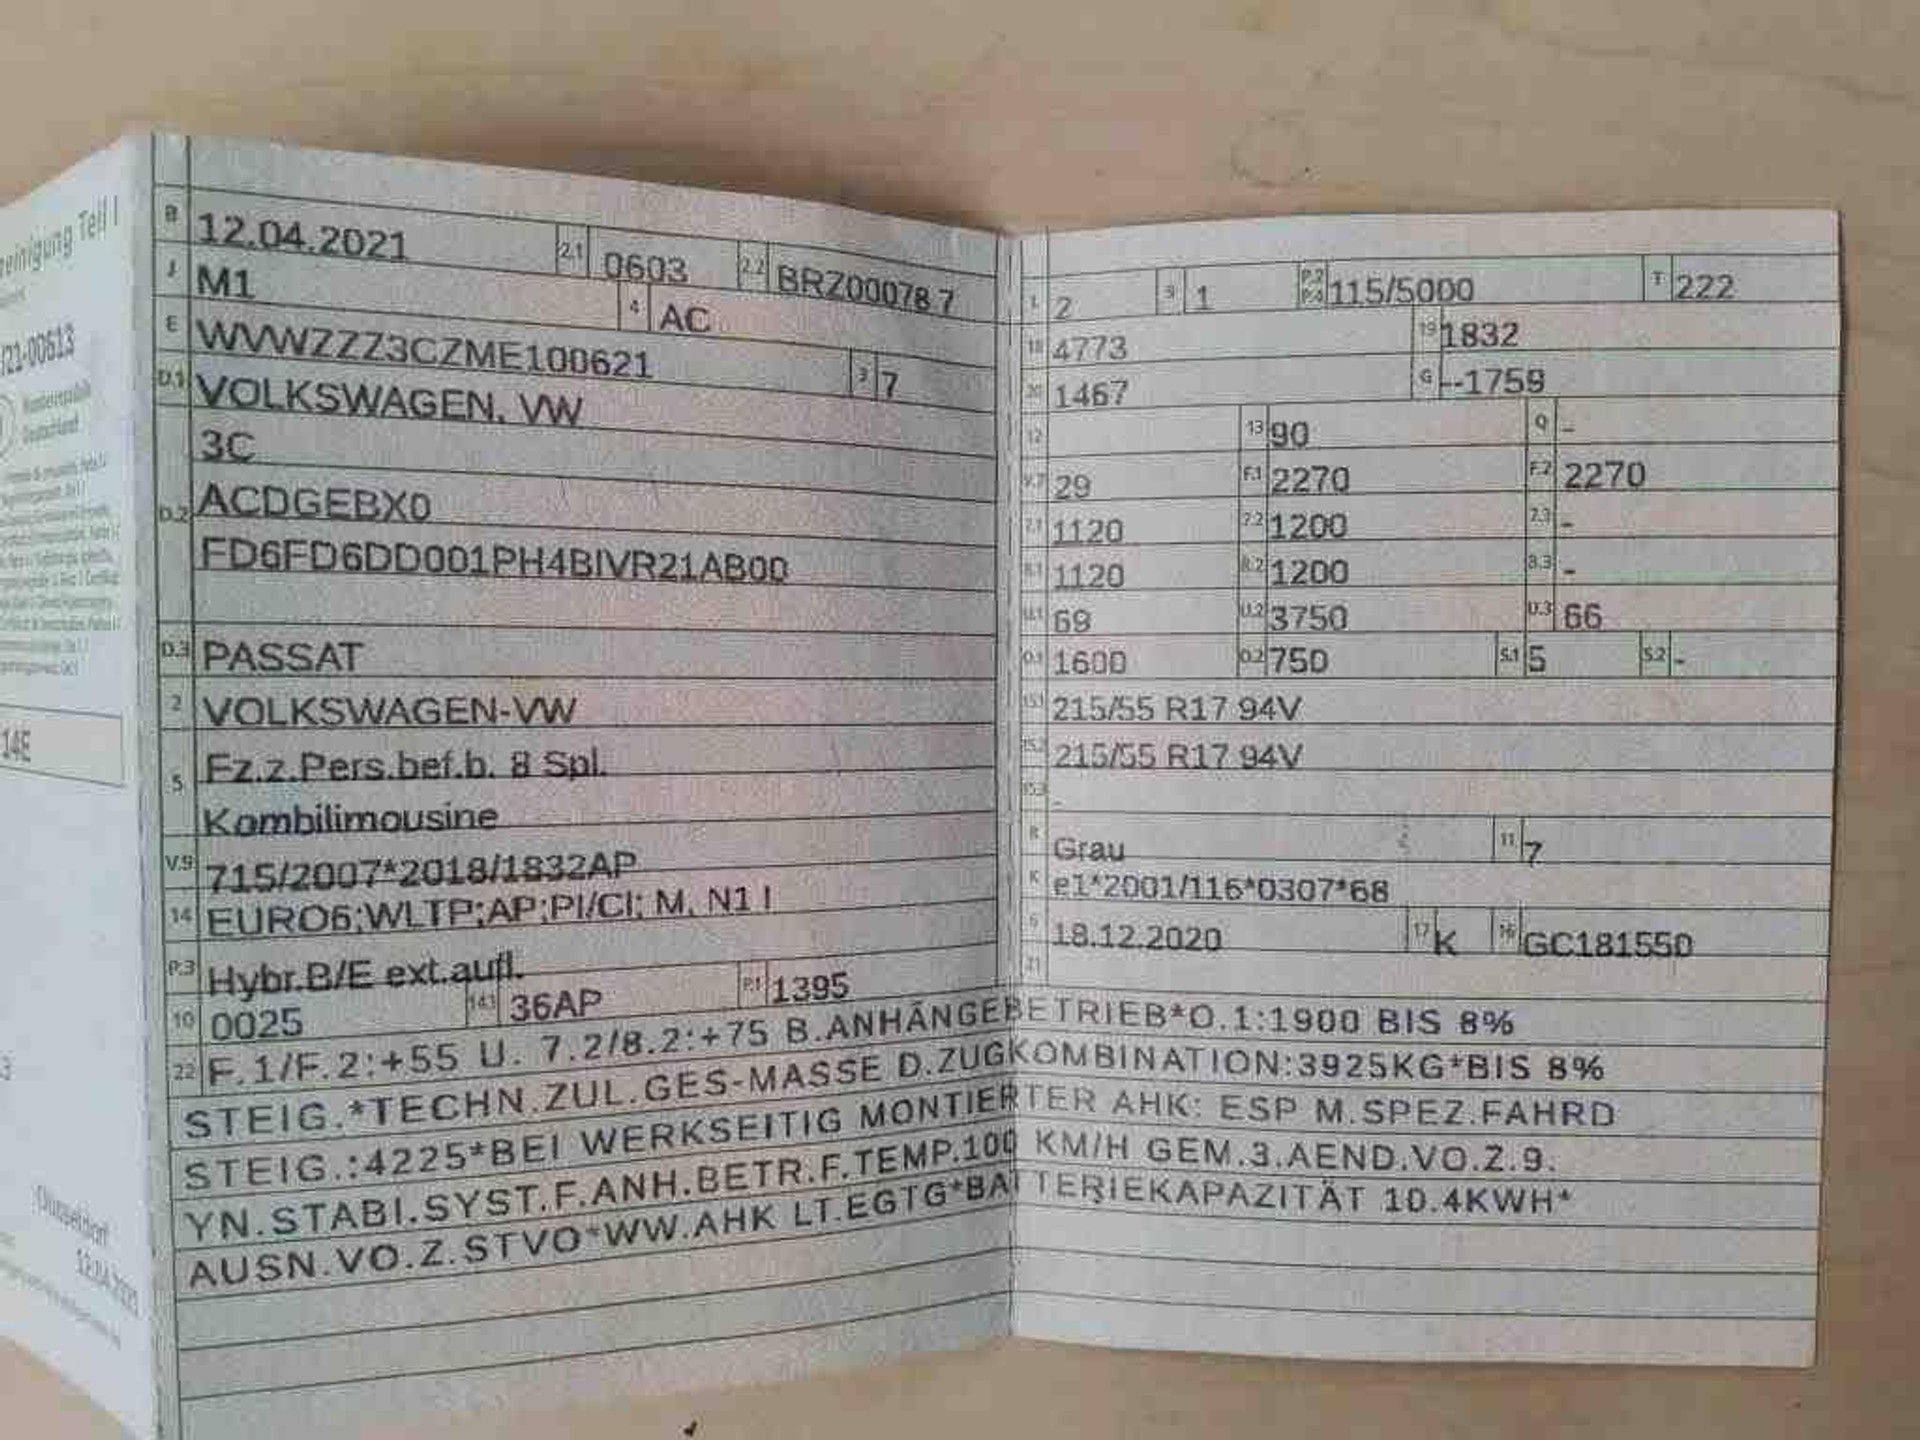 einigung Teil I
/21-00613
14E
Düsseldorf
12.04.2021
B 12.04.2021 2.1 0603 2.2 BRZ00078 7
J M1 4 AC
E WVWZZZ3CZME100621 3 7
D.1 VOLKSWAGEN, VW
3C
D.2 ACDGEBX0
FD6FD6DD001PH4BIVR21AB00
D.3 PASSAT
2 VOLKSWAGEN-VW
5 Fz.z.Pers.bef.b. 8 Spl.
Kombilimousine
V.9 715/2007*2018/1832AP
14 EURO6;WLTP;AP;PI/CI; M, N1 I
P.3 Hybr.B/E ext.aufl.
10 0025 14.1 36AP P.1 1395
L 2 9 1 P.2 P.4 115/5000 T 222
18 4773 19 1832
20 1467 G --1759
12 13 90 Q -
V.7 29 F.1 2270 F.2 2270
7.1 1120 7.2 1200 7.3 -
8.1 1120 8.2 1200 8.3 -
U.1 69 U.2 3750 U.3 66
O.1 1600 O.2 750 S.1 5 S.2 -
15.1 215/55 R17 94V
15.2 215/55 R17 94V
15.3 -
R Grau 11 7
K e1*2001/116*0307*68
6 18.12.2020 17 K 16 GC181550
21
22 F.1/F.2:+55 U. 7.2/8.2:+75 B.ANHÄNGEBETRIEB*O.1:1900 BIS 8%
STEIG.*TECHN.ZUL.GES-MASSE D.ZUGKOMBINATION:3925KG*BIS 8%
STEIG.:4225*BEI WERKSEITIG MONTIERTER AHK: ESP M.SPEZ.FAHRD
YN.STABI.SYST.F.ANH.BETR.F.TEMP.100 KM/H GEM.3.AEND.VO.Z.9.
AUSN.VO.Z.STVO*WW.AHK LT.EGTG*BATTERIEKAPAZITÄT 10.4KWH*